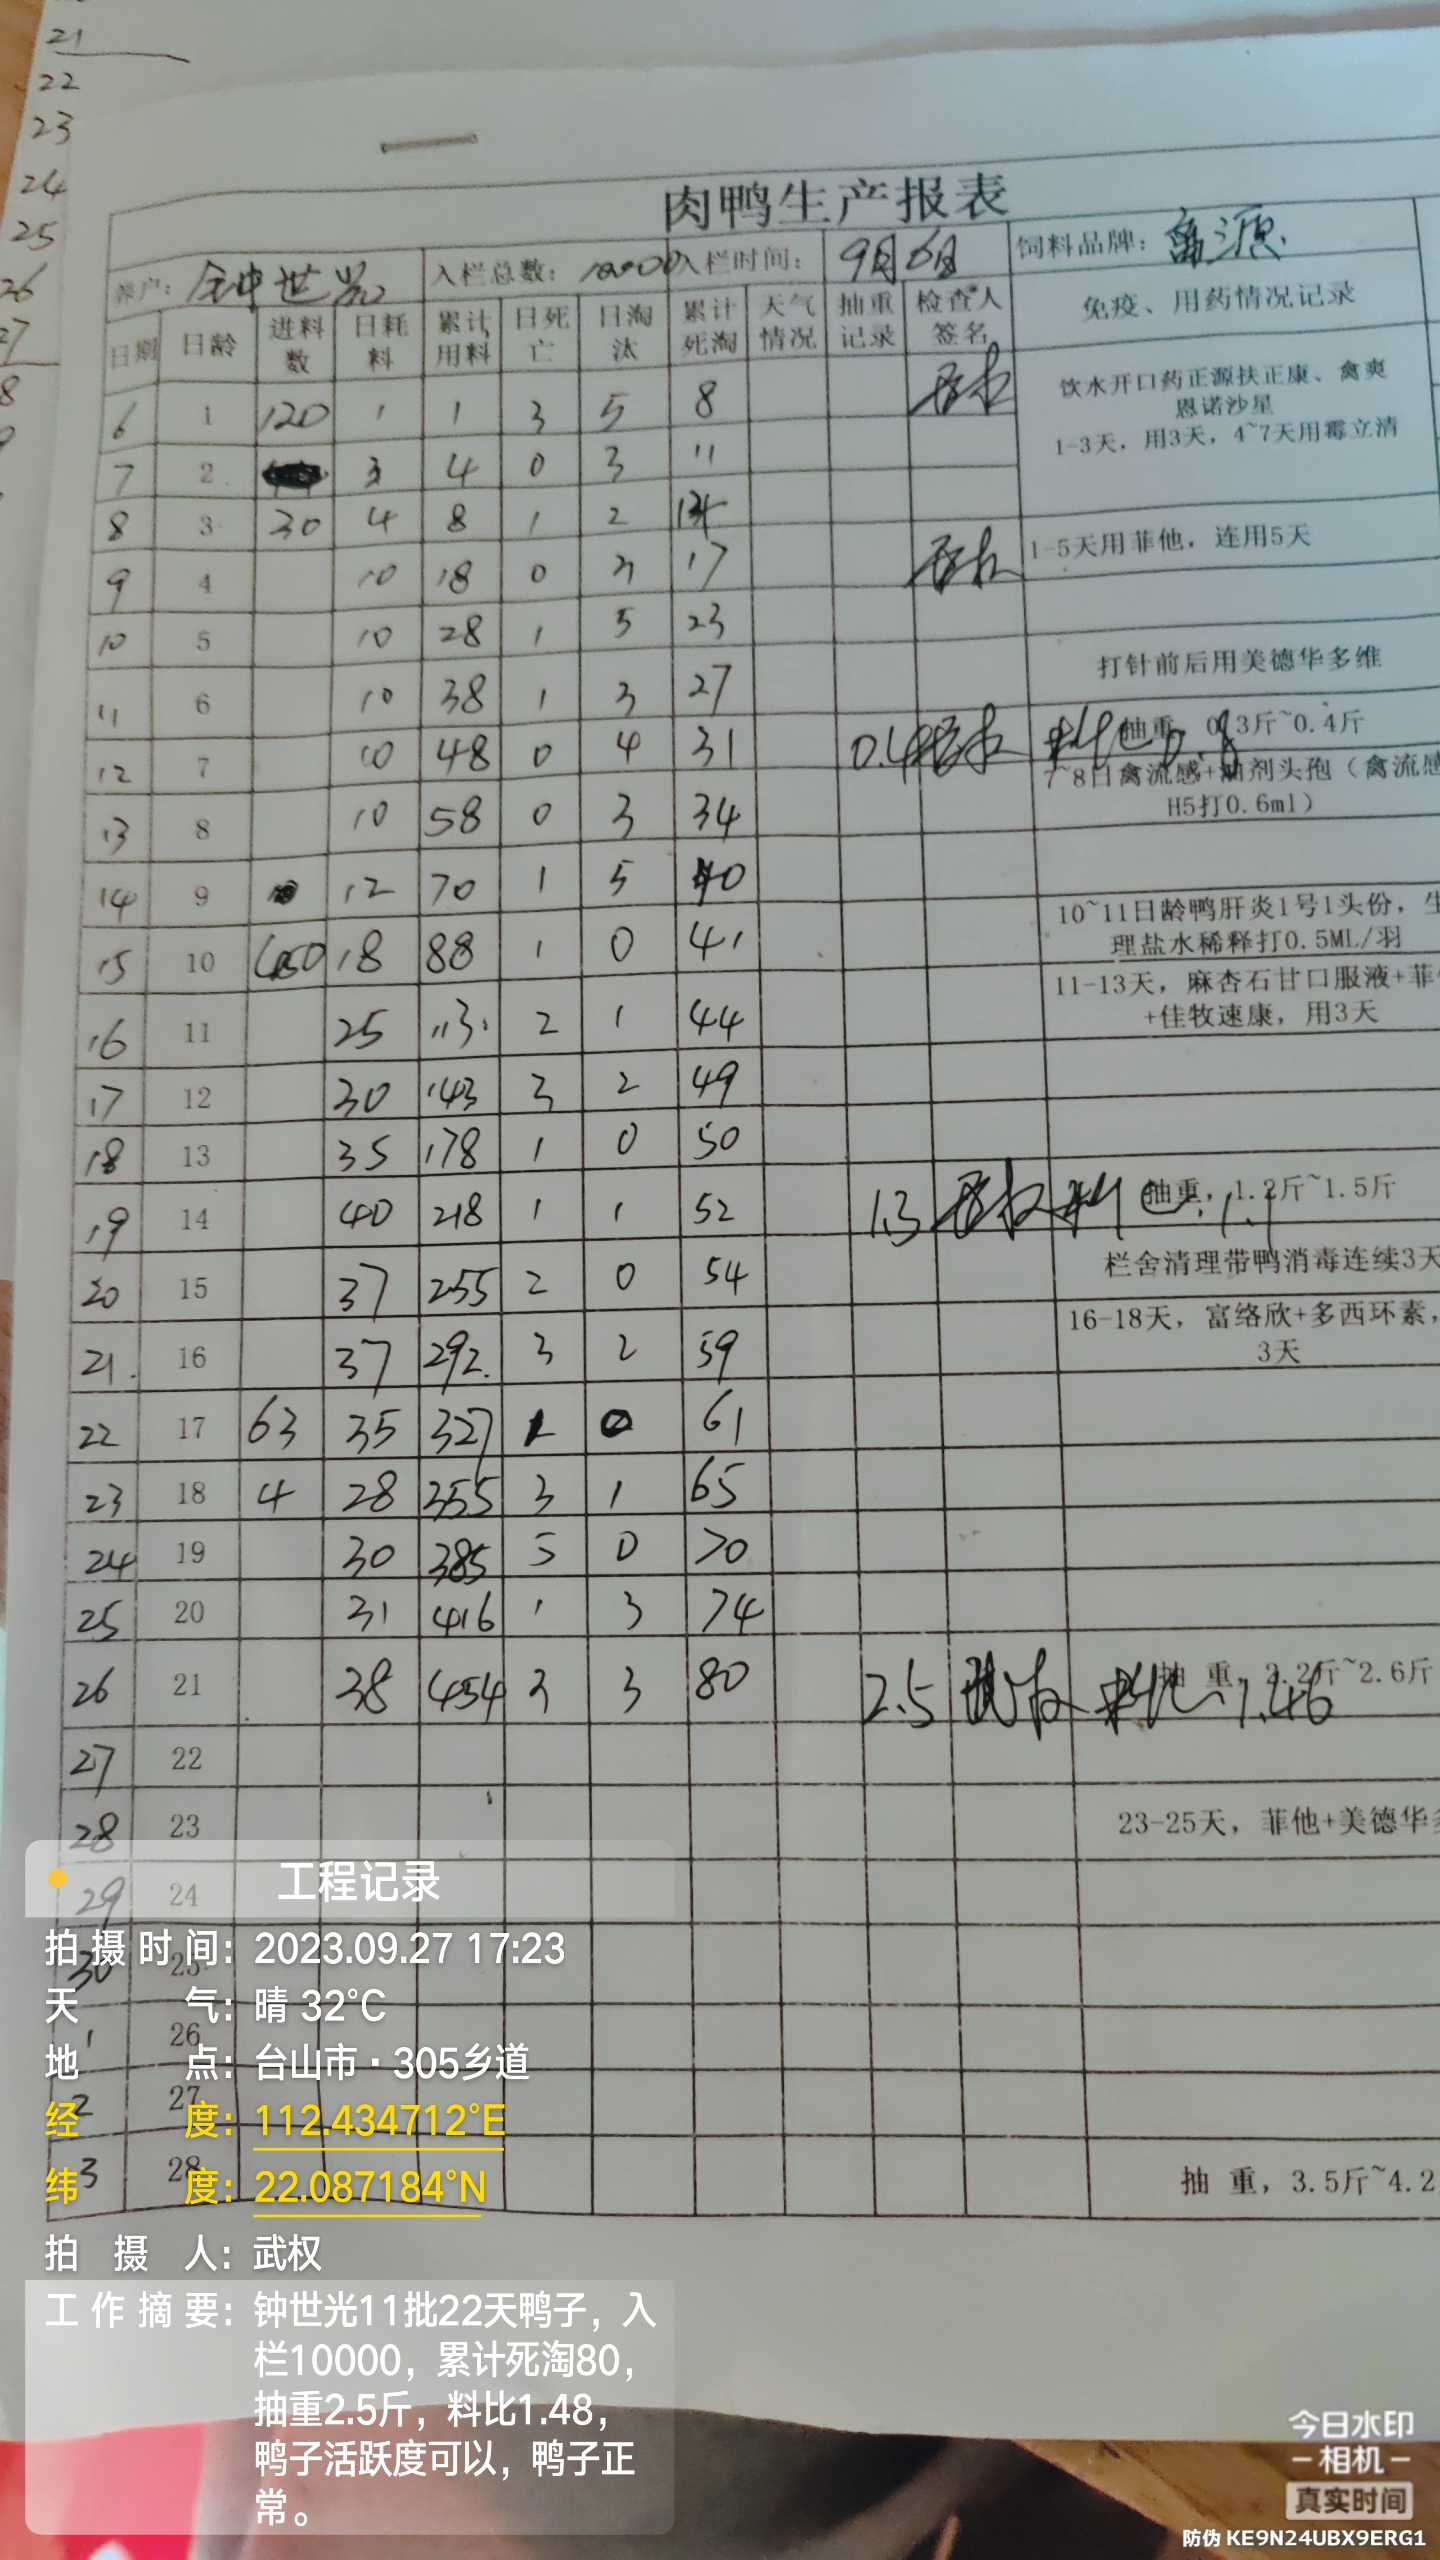 21
22
23
24
25
26
27
8
9
肉鸭生产报表
养户: 钟世光 入栏总数: 10000 入栏时间: 9月6日 饲料品牌:
日期 日龄 进料数 日耗料 累计用料 日死亡 日淘汰 累计死淘 天气情况 抽重记录 检查人签名 免疫、用药情况记录
6 1 120 1 1 3 5 8 武权
饮水开口药正源扶正康、禽爽
恩诺沙星
1-3天，用3天，4~7天用霉立清
7 2 3 4 0 3 11
8 3 30 4 8 1 2 14
9 4 10 18 0 3 17 武权 1-5天用菲他，连用5天
10 5 10 28 1 5 23
11 6 10 38 1 3 27 打针前后用美德华多维
12 7 10 48 0 4 31 0.4 武权 料比0.8 抽重，0.3斤~0.4斤
7~8日禽流感+油剂头孢（禽流感
H5打0.6ml）
13 8 10 58 0 3 34
14 9 12 70 1 5 40
15 10 450 18 88 1 0 41
10~11日龄鸭肝炎1号1头份，生
理盐水稀释打0.5ML/羽
16 11 25 113 2 1 44
11-13天，麻杏石甘口服液+菲
+佳牧速康，用3天
17 12 30 143 3 2 49
18 13 35 178 1 0 50
19 14 40 218 1 1 52 1.3 武权 料比:1.1 抽重，1.2斤~1.5斤
20 15 37 255 2 0 54 栏舍清理带鸭消毒连续3天
21. 16 37 292. 3 2 59
16-18天，富络欣+多西环素，
3天
22 17 63 35 327 0 61
23 18 4 28 355 3 1 65
24 19 30 385 5 0 70
25 20 31 416 1 3 74
26 21 38 454 3 3 80 2.5 武权 料比:1.46 抽 重，2.2斤~2.6斤
27 22
28 23 23-25天，菲他+美德华多
29 24
30 25
1 26
2 27
3 28 抽 重，3.5斤~4.2
工程记录
拍摄时间: 2023.09.27 17:23
天气: 晴 32°C
地点: 台山市·305乡道
经度: 112.434712°E
纬度: 22.087184°N
拍摄人: 武权
工作摘要: 钟世光11批22天鸭子，入
栏10000，累计死淘80，
抽重2.5斤，料比1.48，
鸭子活跃度可以，鸭子正
常。
今日水印
相机
真实时间
防伪 KE9N24UBX9ERG1